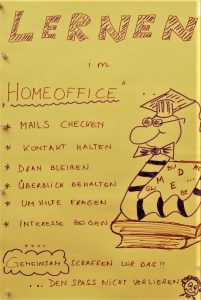 LERNEN
im
„HOMEOFFICE“
* MAILS CHECKEN
* KONTAKT HALTEN
* DRAN BLEIBEN
* ÜBERBLICK BEHALTEN
* UM HILFE FRAGEN
* INTERESSE ZEIGEN
GEMEINSAM SCHAFFEN WIR DAS!!
... DEN SPASS NICHT VERLIEREN